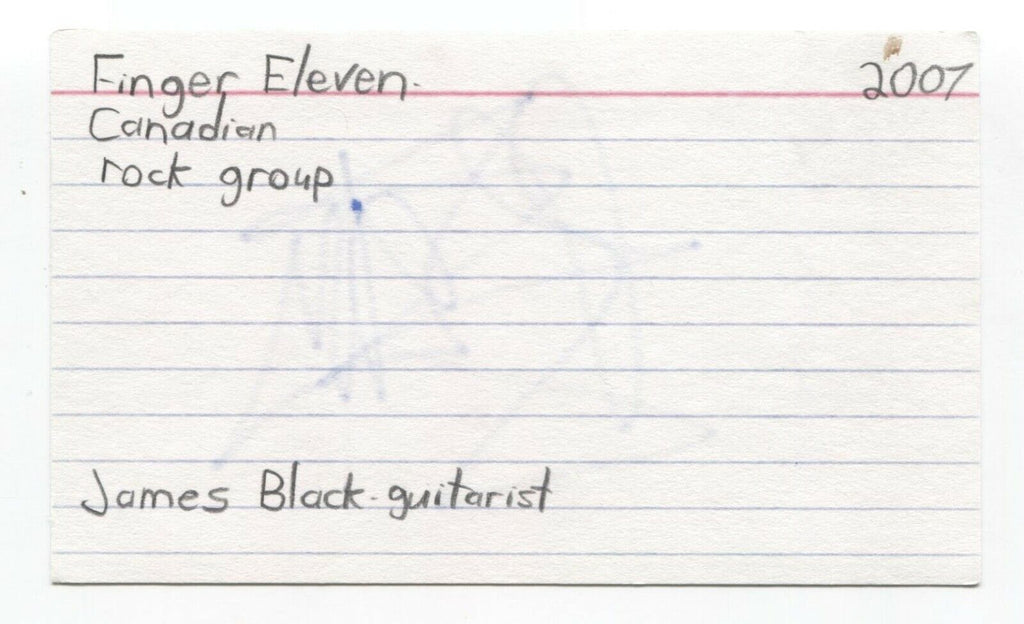 Finger Eleven. 2007
Canadian
rock group
James Black-guitarist